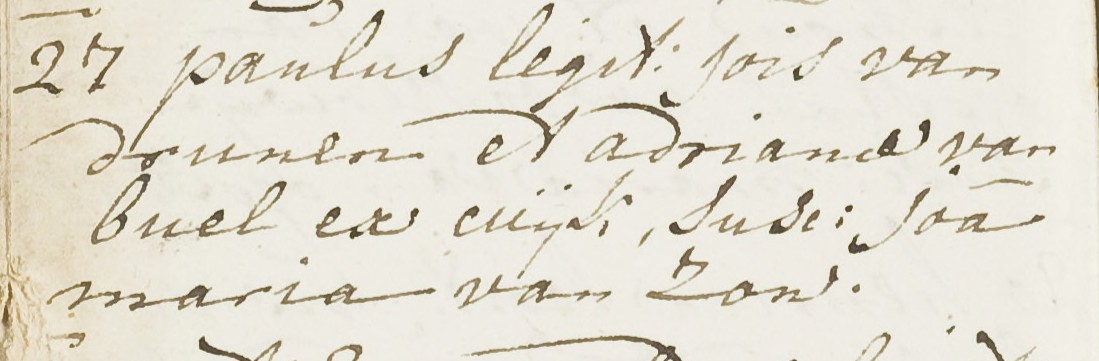 27 paulus legit: jois van
drunen et adrianae van
buel ex cuijk, susc: joā
maria van Zon.